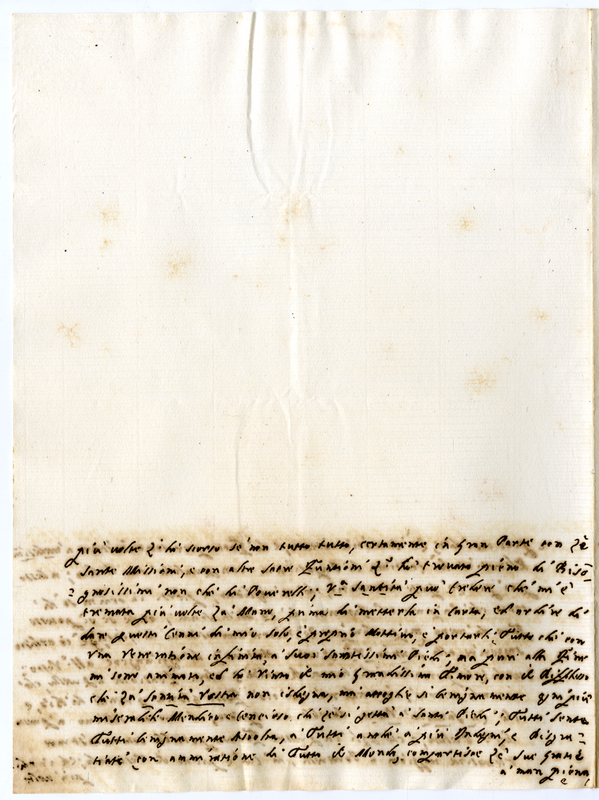 più volte l'hò scorso se non tutto tutto, certamente in Gran Parte con le
Sante Missioni, e con altre Sacre Funzioni l'hò trovato pieno di Biso=
=gnosissimi non che di Poverelli; V.ra Santità può credere che m'è
tremata più volte la Mano, prima di metterle in Carta, ed ordire di
dare questi Cenni di mio solo, e proprio Mottivo, e portarli Tutto che con
Una Veneratione infinita, a' suoi Santissimi Piedi, ma pure alla fine
mi sono animato, ed hò Vinto il mio Timore, con il Riflesso
che la Santità Vostra non isdegna, ma accoglie si benignamente ogni più
miserabile Mendico e Cencioso, che se li getta a' Santi Piedi; Tutti Sente
Tutti benignamente Ascolta, a Tutti anche a' più Indegni, e Bisogna=
con ammiratione di Tutto il Mondo, compartisce le Sue Gratie
a man piena